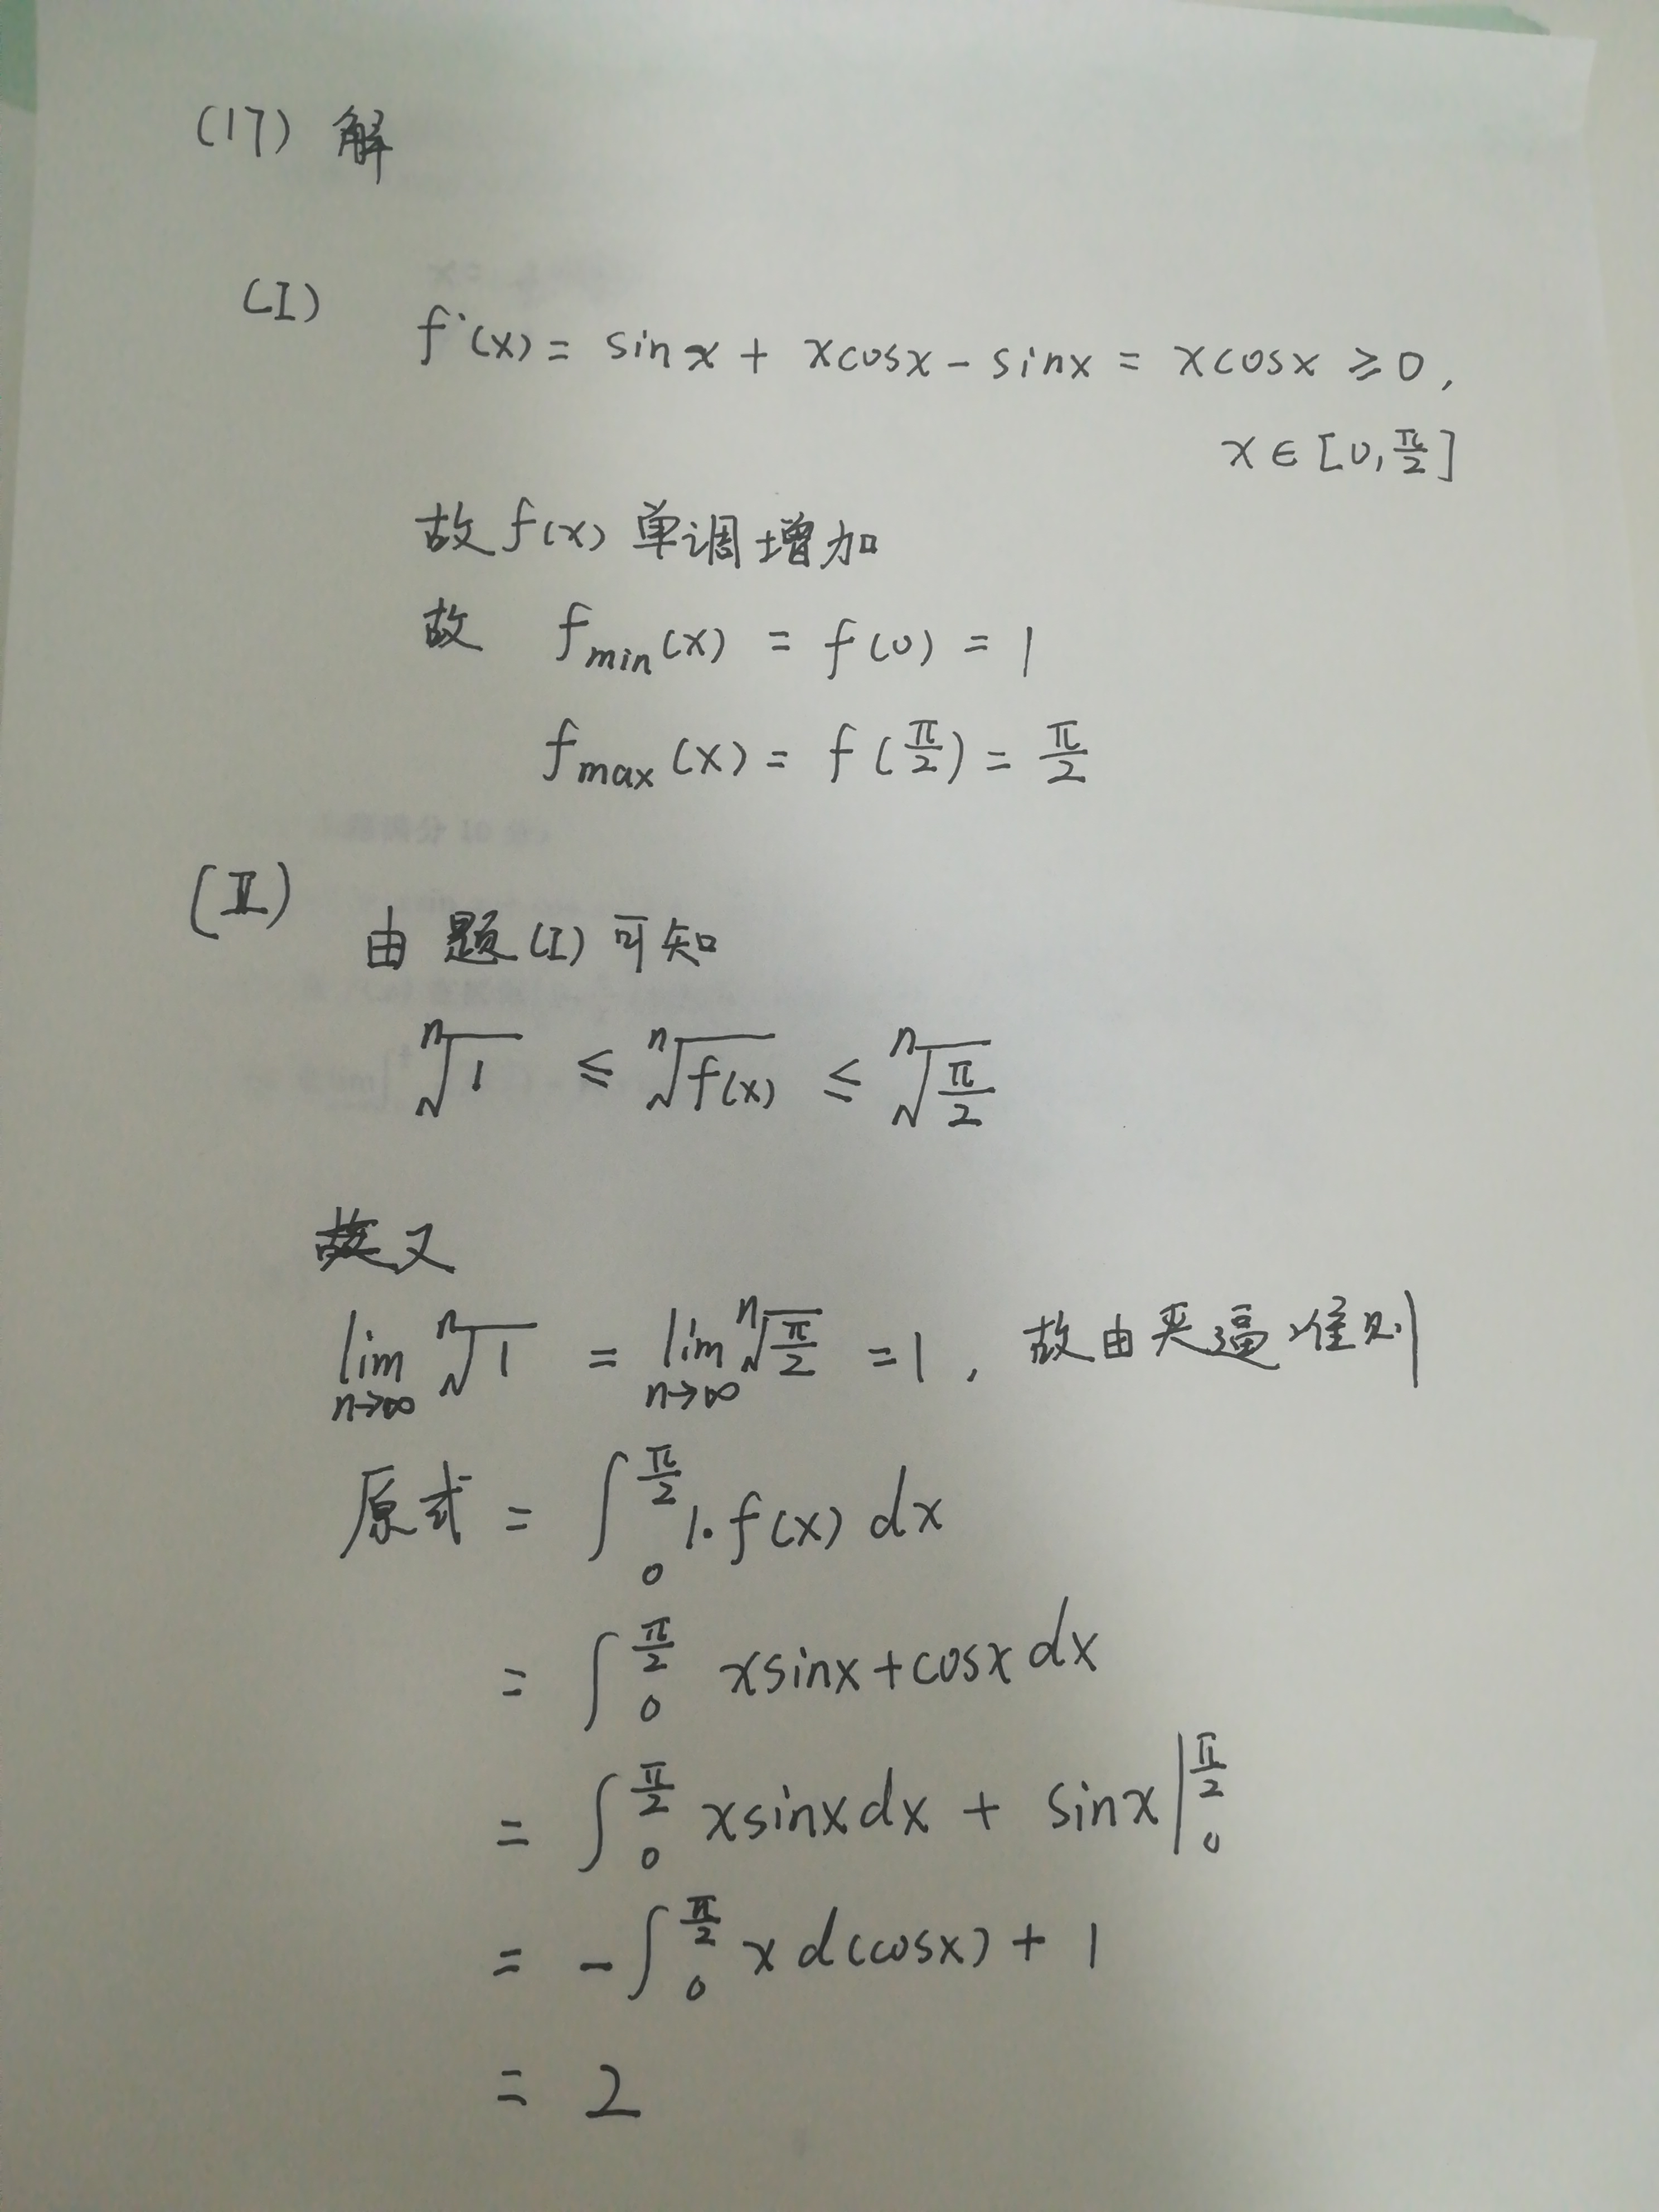 (17) 解
(I)
f'(x) = sinx + xcosx - sinx = xcosx ≥ 0,
x ∈ [0, π/2]
故 f(x) 单调增加
故 f_min(x) = f(0) = 1
f_max(x) = f(π/2) = π/2
(Ⅱ)
由题(I)可知
ⁿ√1 ≤ ⁿ√f(x) ≤ ⁿ√(π/2)
又
lim_{n→∞} ⁿ√1 = lim_{n→∞} ⁿ√(π/2) = 1, 故由夹逼准则
原式 = ∫_0^{π/2} 1·f(x) dx
= ∫_0^{π/2} xsinx + cosx dx
= ∫_0^{π/2} xsinx dx + sinx |_0^{π/2}
= -∫_0^{π/2} x d(cosx) + 1
= 2